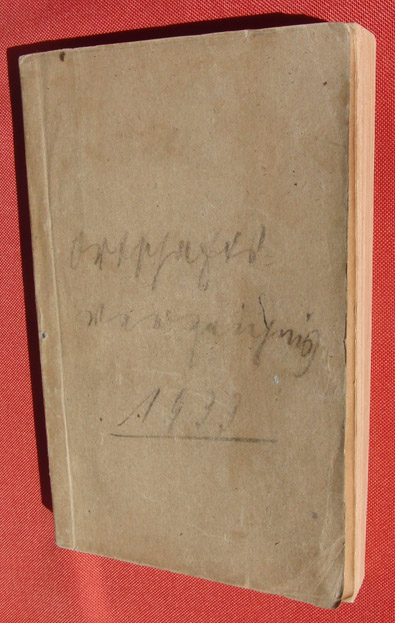 Ortschafts-
verzeichnis
1933